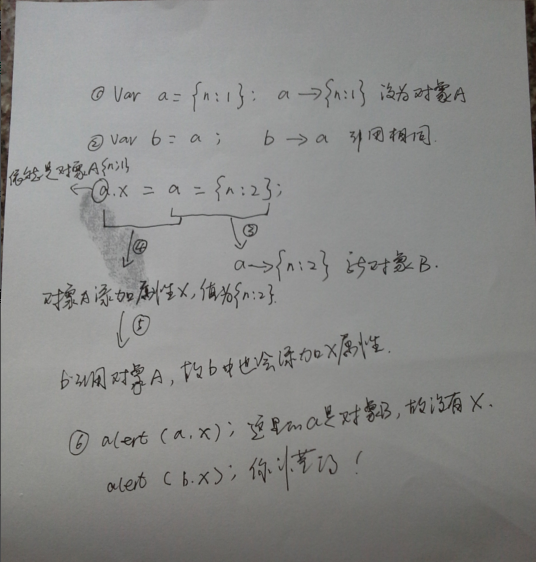 ① Var a = {n:1}; a → {n:1} 设为对象A
② Var b = a; b → a 引用相同.
依然是对象A{n:1}
← a.x = a = {n:2};
④ ③
a → {n:2} 新对象B.
对象A添加属性X, 值为{n:2}.
⑤
b引用对象A, 故b中也会添加X属性.
⑥ alert (a.x); 这里的a是对象B, 故没有X.
alert (b.x); 你懂的!